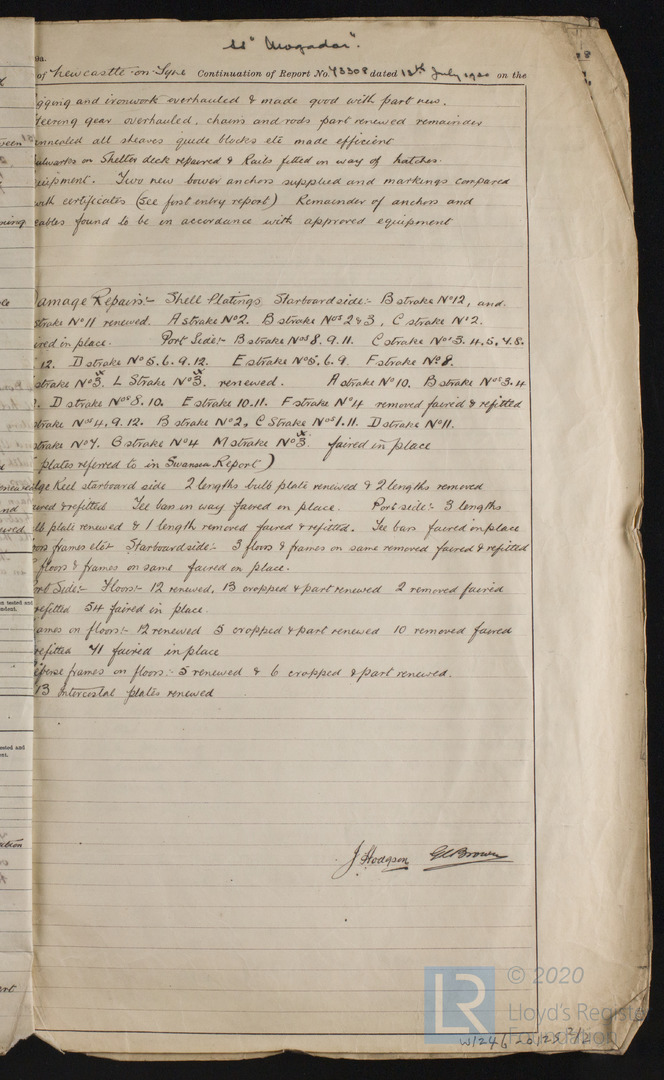 SS "Mogador".
9a.
of Newcastle-on-Tyne Continuation of Report No. 73308 dated 12th July 1920 on the
igging and ironwork overhauled & made good with part new.
teering gear overhauled, chains and rods part renewed remainder
annealed all sheaves guide blocks etc made efficient
ulwarks on Shelter deck repaired & Rails fitted in way of hatches.
uipment. Two new bower anchors supplied and markings compared
with certificates (See first entry report) Remainder of anchors and
cables found to be in accordance with approved equipment
amage Repairs:- Shell Platings Starboard side:- B strake No 12, and
strake No 11 renewed. A strake No 2. B strake Nos 2 & 3, C strake No 2.
ired in place. Port Side:- B strake Nos 8. 9. 11. C strake Nos 3. 4. 5. 7. 8.
12. D strake Nos 5. 6. 9. 12. E strake Nos 5. 6. 9. F strake No 8.
strake No 3. L Strake No 3. renewed. A strake No 10. B strake Nos 3. 4
D strake Nos 8. 10. E strake 10. 11. F strake No 4 removed faired & refitted
strake Nos 4, 9. 12. B strake No 2, C Strake Nos 1. 11. D strake No 11.
strake No 7. G strake No 4 M strake No 3. faired in place
plates referred to in Swansea Report)
lge Keel starboard side 2 lengths bulb plate renewed & 2 lengths removed
aired & refitted Tee bars in way faired in place. Port side:- 3 lengths
lb plate renewed & 1 length removed faired & refitted. Tee bars faired in place
oors frames etc:- Starboard side:- 3 floors & frames on same removed faired & refitted
floors & frames on same faired in place.
ort Side:- Floors:- 12 renewed, 13 cropped & part renewed 2 removed faired
refitted 54 faired in place.
ames on floors:- 12 renewed 5 cropped & part renewed 10 removed faired
refitted 71 faired in place
everse frames on floors:- 5 renewed & 6 cropped & part renewed.
13 intercostal plates renewed
J Hodgson G.E. Brown
LR
© 2020
Lloyd's Register
Foundation
W1246-0125 2/2